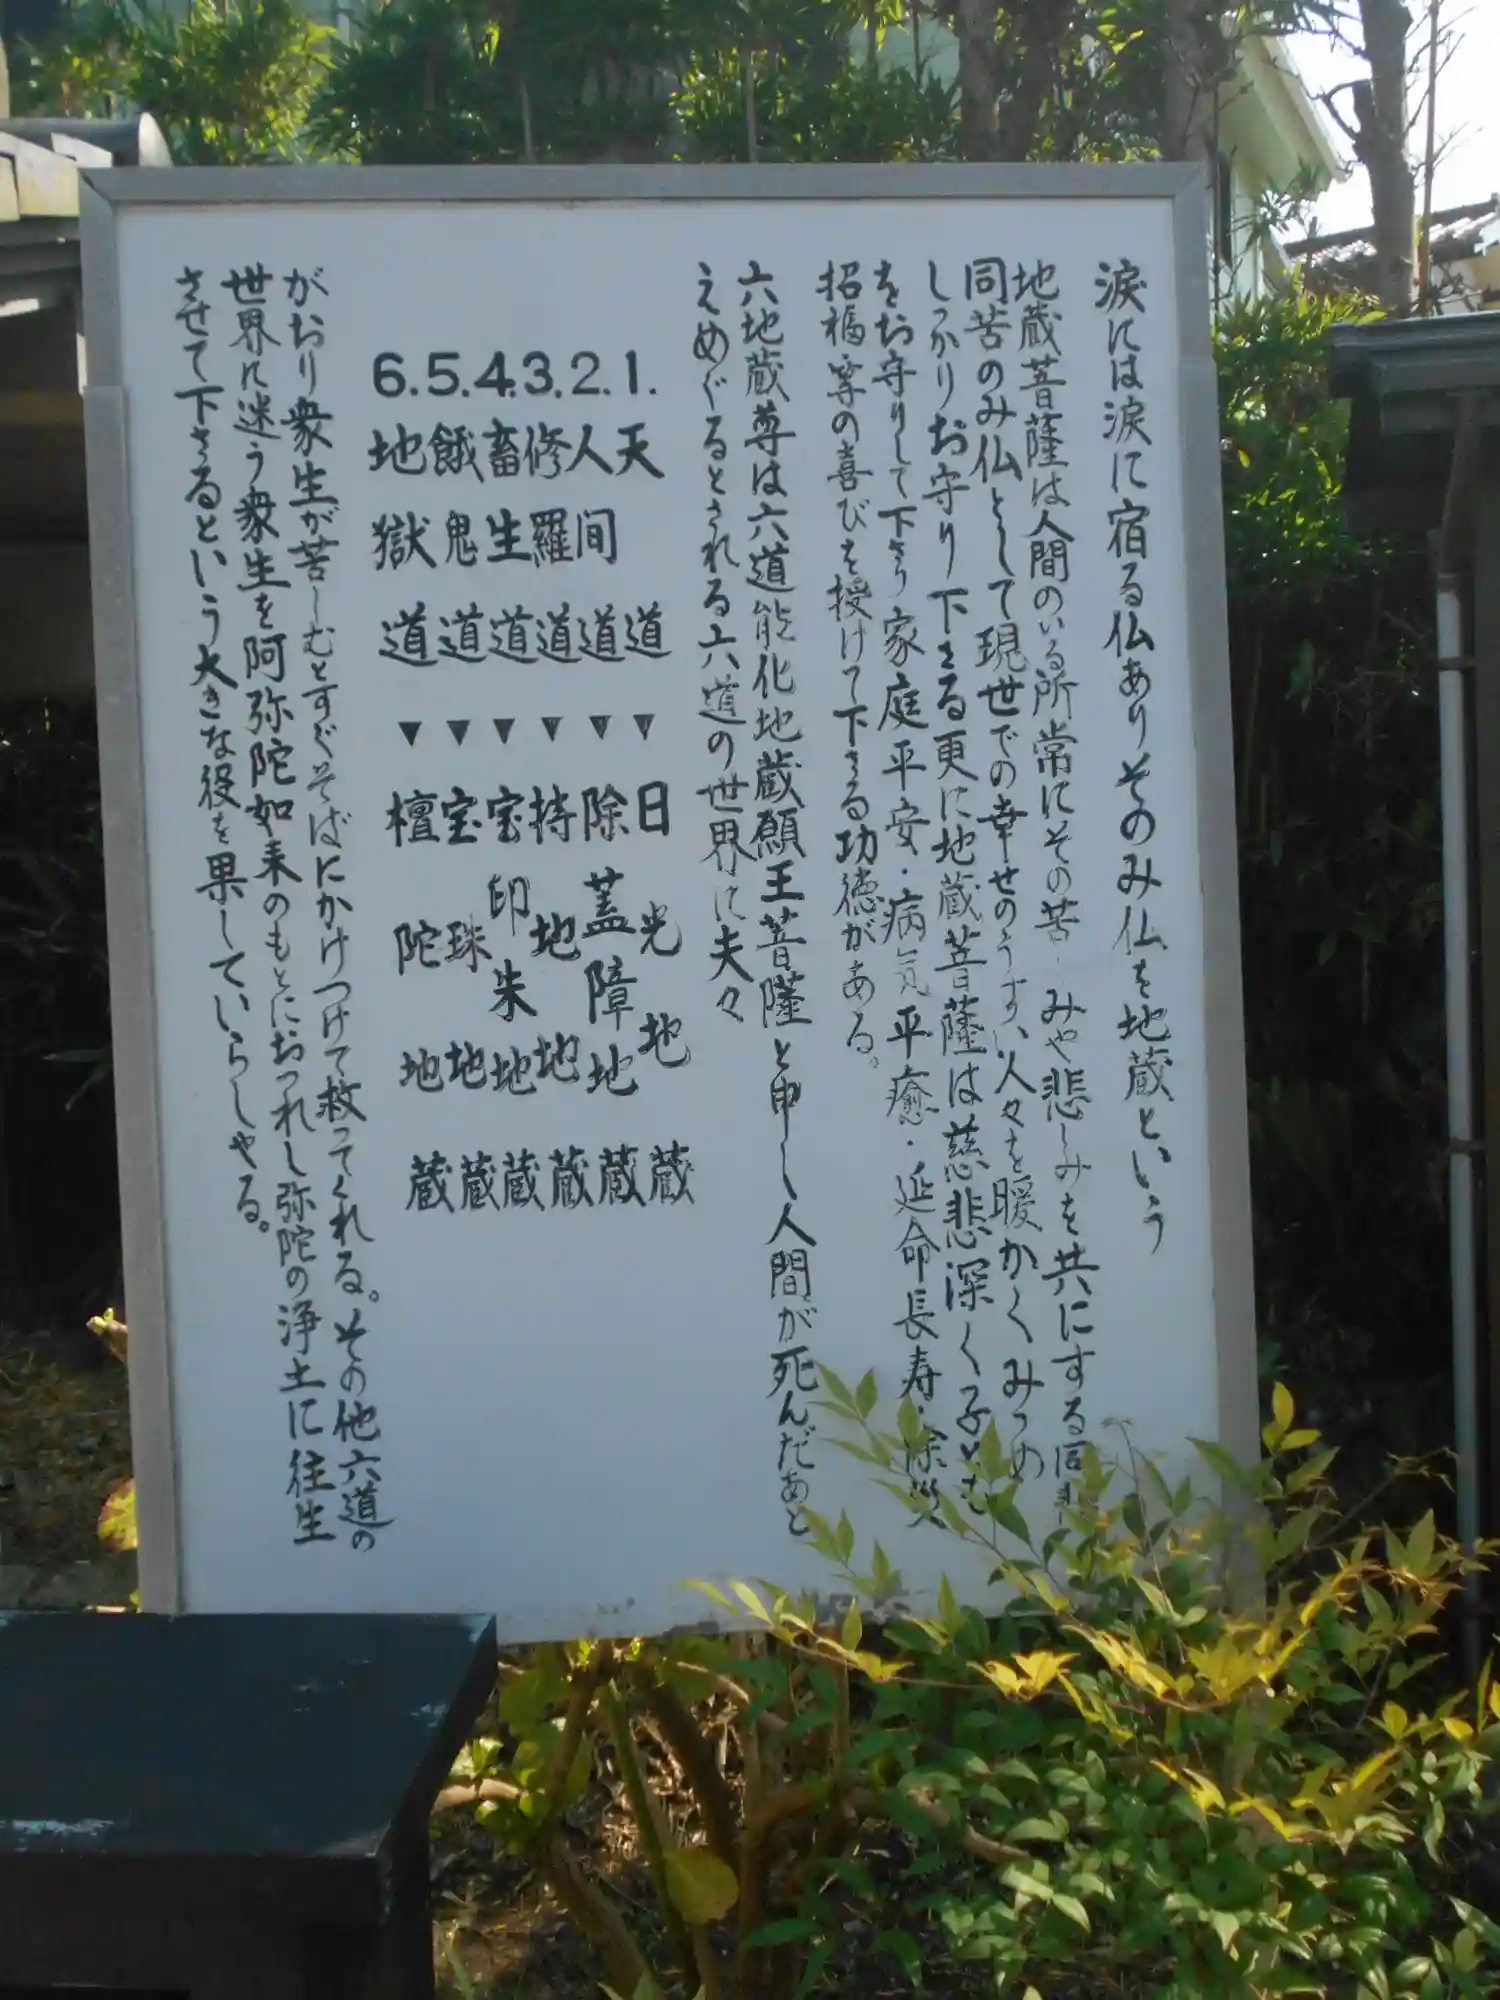 涙には涙に宿る仏ありそのみ仏を地蔵という
地蔵菩薩は人間のいる所常にその苦しみや悲しみを共にする同
同苦のみ仏として現世での幸せのうすい人々を暖かくみつめ
しっかりお守り下さる更に地蔵菩薩は慈悲深く子ども
をお守りして下さり家庭平安・病気平癒・延命長寿・除災
招福等の喜びを授けて下さる功徳がある。
六地蔵尊は六道能化地蔵願王菩薩と申し人間が死んだあと
えめぐるとされる六道の世界に夫々
1.天道▼日光地蔵
2.人间道▼除蓋障地蔵
3.修羅道▼持地地蔵
4.畜生道▼宝印朱地蔵
5.餓鬼道▼宝珠地蔵
6.地獄道▼檀陀地蔵
がおり衆生が苦しむとすぐそばにかけつけて救ってくれる。その他六道の
世界に迷う衆生を阿弥陀如来のもとにおつれし弥陀の浄土に往生
させて下さるという大きな役を果していらしゃる。